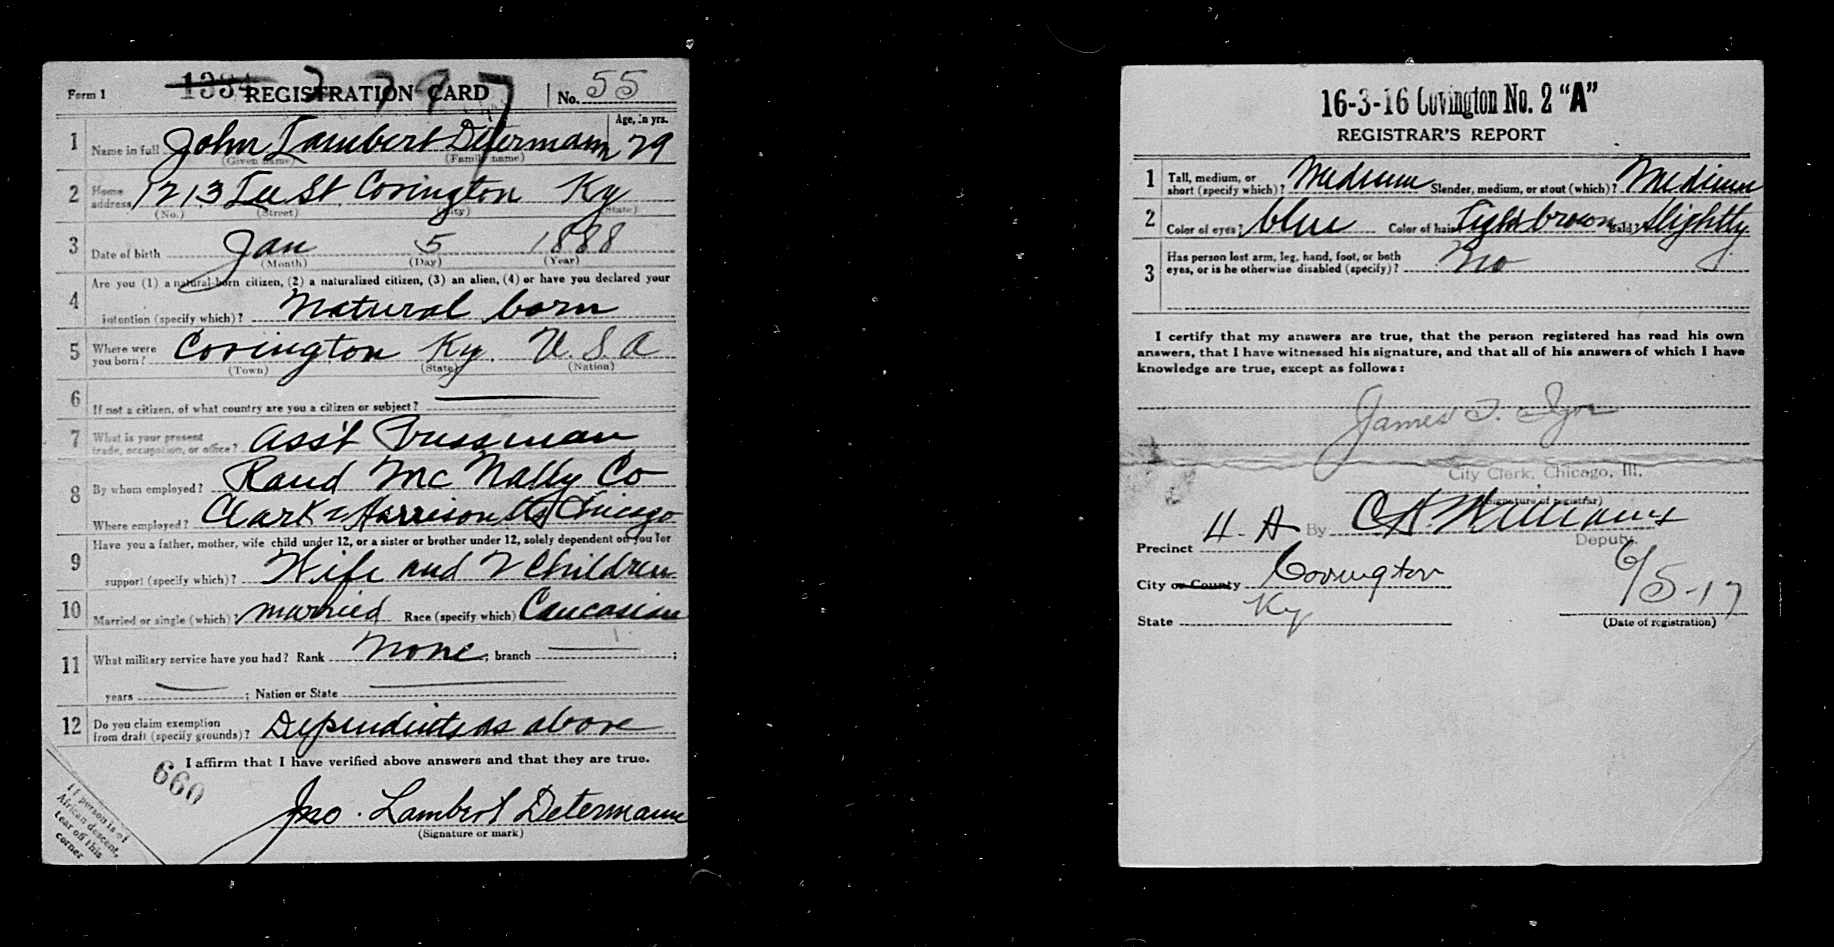 Form 1 1334 REGISTRATION CARD No. 55
2797
1 Name in full John Lambert Determann Age, in yrs. 29
(Given name) (Family name)
2 Home address 1213 Lee St Covington Ky
(No.) (Street) (City) (State)
3 Date of birth Jan 5 1888
(Month) (Day) (Year)
4 Are you (1) a natural-born citizen, (2) a naturalized citizen, (3) an alien, (4) or have you declared your
intention (specify which)? Natural born
5 Where were you born? Covington Ky. U.S.A
(Town) (State) (Nation)
6 If not a citizen, of what country are you a citizen or subject?
7 What is your present trade, occupation, or office? Ass't Pressman
8 By whom employed? Rand Mc Nally Co
Where employed? Clark & Harrison Sts Chicago
9 Have you a father, mother, wife child under 12, or a sister or brother under 12, solely dependent on you for
support (specify which)? Wife and 2 Children
10 Married or single (which)? married Race (specify which) Caucasian
11 What military service have you had? Rank None; branch ;
years ; Nation or State
12 Do you claim exemption from draft (specify grounds)? Dependents as above
I affirm that I have verified above answers and that they are true.
660
Jno. Lambert Determann
(Signature or mark)
If person is of
African descent,
tear off this
corner
16-3-16 Covington No. 2 "A"
REGISTRAR'S REPORT
1 Tall, medium, or short (specify which)? Medium Slender, medium, or stout (which)? Medium
2 Color of eyes? blue Color of hair light brown Bald? Slightly
3 Has person lost arm, leg, hand, foot, or both
eyes, or is he otherwise disabled (specify)? No
I certify that my answers are true, that the person registered has read his own
answers, that I have witnessed his signature, and that all of his answers of which I have
knowledge are true, except as follows:
James T. Igoe
City Clerk, Chicago, Ill.
(Signature of registrar)
By C.H. Williams
Deputy.
Precinct 4-A
City or County Covington
State Ky
6/5-17
(Date of registration)